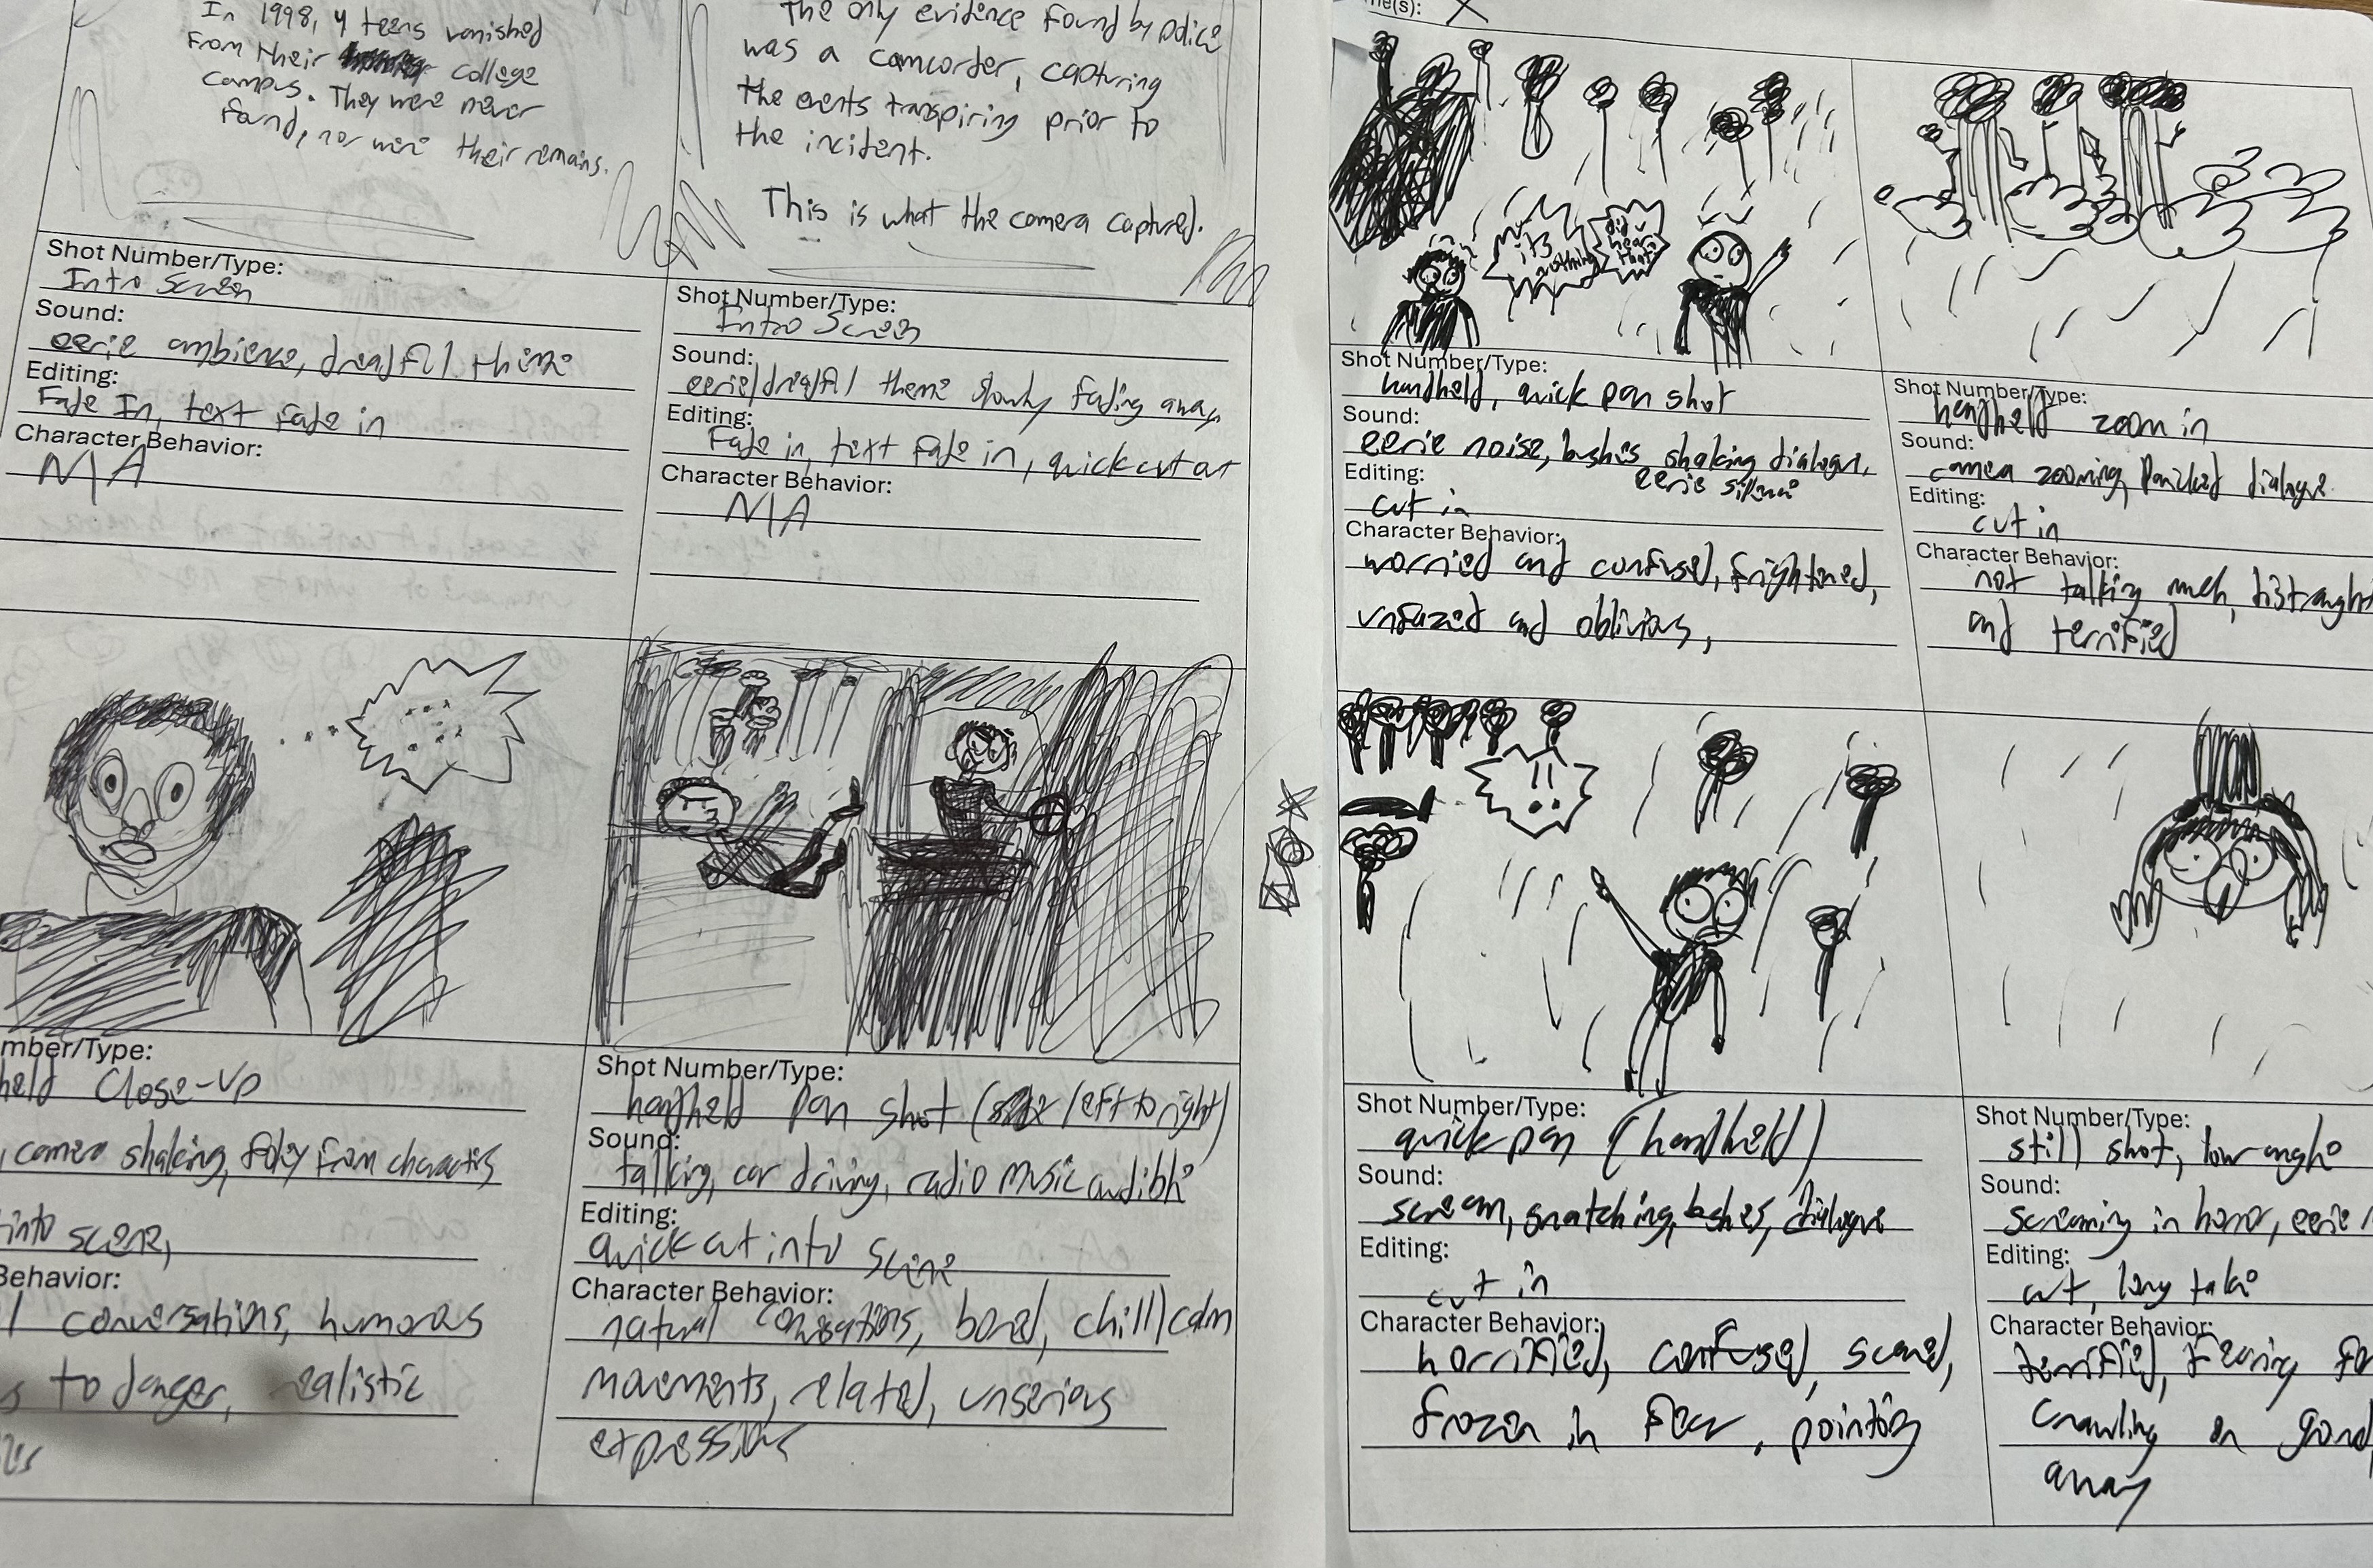 In 1998, 4 teens vanished
From their college
campus. They were never
found, nor were their remains.
Shot Number/Type:
Intro Screen
Sound:
eerie ambience, dreadful theme
Editing:
Fade In, text fade in
Character Behavior:
N/A
The only evidence found by police
was a camcorder, capturing
the events transpiring prior to
the incident.
This is what the camera captured.
Shot Number/Type:
Intro Screen
Sound:
eerie/dreadful theme slowly fading away
Editing:
Fade in, text fade in, quick cut out
Character Behavior:
N/A
mber/Type:
held Close-Up
, camera shaking, foley from characters
into scene,
Behavior:
l conversations, humorous
s to danger, realistic
Shot Number/Type:
handheld pan shot ( left to right)
Sound:
talking, car driving, radio music audible
Editing:
quick cut into scene
Character Behavior:
natural conversations, bored, chill/calm
movements, related, unserious
expressions
me(s):
its nothing
did u hear that
Shot Number/Type:
handheld, quick pan shot
Sound:
eerie noise, bushes shaking dialogue,
eerie silence
Editing:
cut in
Character Behavior:
worried and confused, frightened,
unfazed and oblivious,
Shot Number/Type:
handheld zoom in
Sound:
camera zooming, panicked dialogue
Editing:
cut in
Character Behavior:
not talking much, distraught
and terrified
!!
Shot Number/Type:
quick pan (handheld)
Sound:
scream, snatching, bushes, dialogue
Editing:
cut in
Character Behavior:
horrified, confused, scared,
frozen in fear, pointing
Shot Number/Type:
still shot, low angle
Sound:
screaming in horror, eerie
Editing:
cut, long take
Character Behavior:
terrified, fearing for
crawling on ground
away